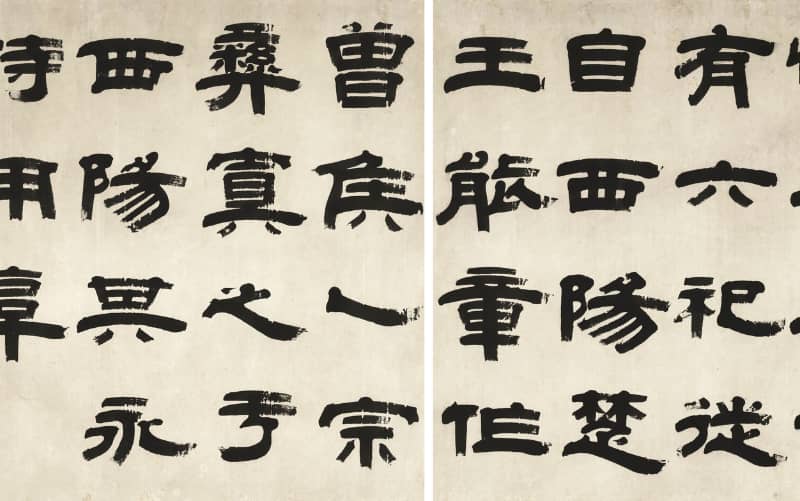 有六祀從
自西陽楚
王能章作
曾矦乙宗
彝寘之于
西陽其永
用